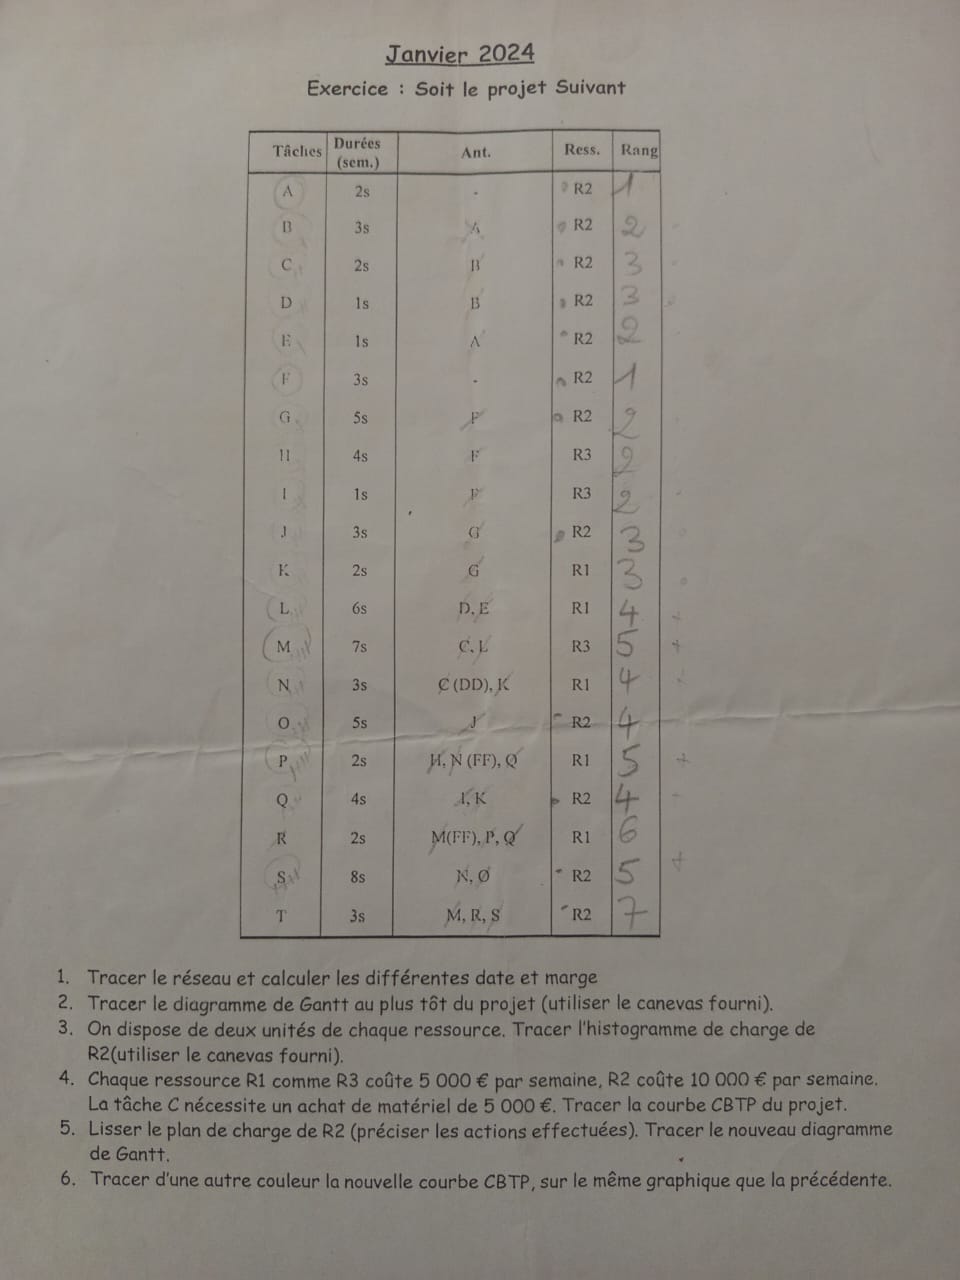 Janvier 2024
Exercice : Soit le projet Suivant
Tâches Durées (sem.) Ant. Ress. Rang
A 2s - R2 1
B 3s A R2 2
C 2s B R2 3
D 1s B R2 3
E 1s A R2 2
F 3s - R2 1
G 5s F R2 2
H 4s F R3 2
I 1s F R3 2
J 3s G R2 3
K 2s G R1 3
L 6s D, E R1 4
M 7s C, L R3 5
N 3s C (DD), K R1 4
O 5s J R2 4
P 2s H, N (FF), Q R1 5
Q 4s I, K R2 4
R 2s M(FF), P, Q R1 6
S 8s N, O R2 5
T 3s M, R, S R2 7
1. Tracer le réseau et calculer les différentes date et marge
2. Tracer le diagramme de Gantt au plus tôt du projet (utiliser le canevas fourni).
3. On dispose de deux unités de chaque ressource. Tracer l'histogramme de charge de
R2(utiliser le canevas fourni).
4. Chaque ressource R1 comme R3 coûte 5 000 € par semaine, R2 coûte 10 000 € par semaine.
La tâche C nécessite un achat de matériel de 5 000 €. Tracer la courbe CBTP du projet.
5. Lisser le plan de charge de R2 (préciser les actions effectuées). Tracer le nouveau diagramme
de Gantt.
6. Tracer d'une autre couleur la nouvelle courbe CBTP, sur le même graphique que la précédente.